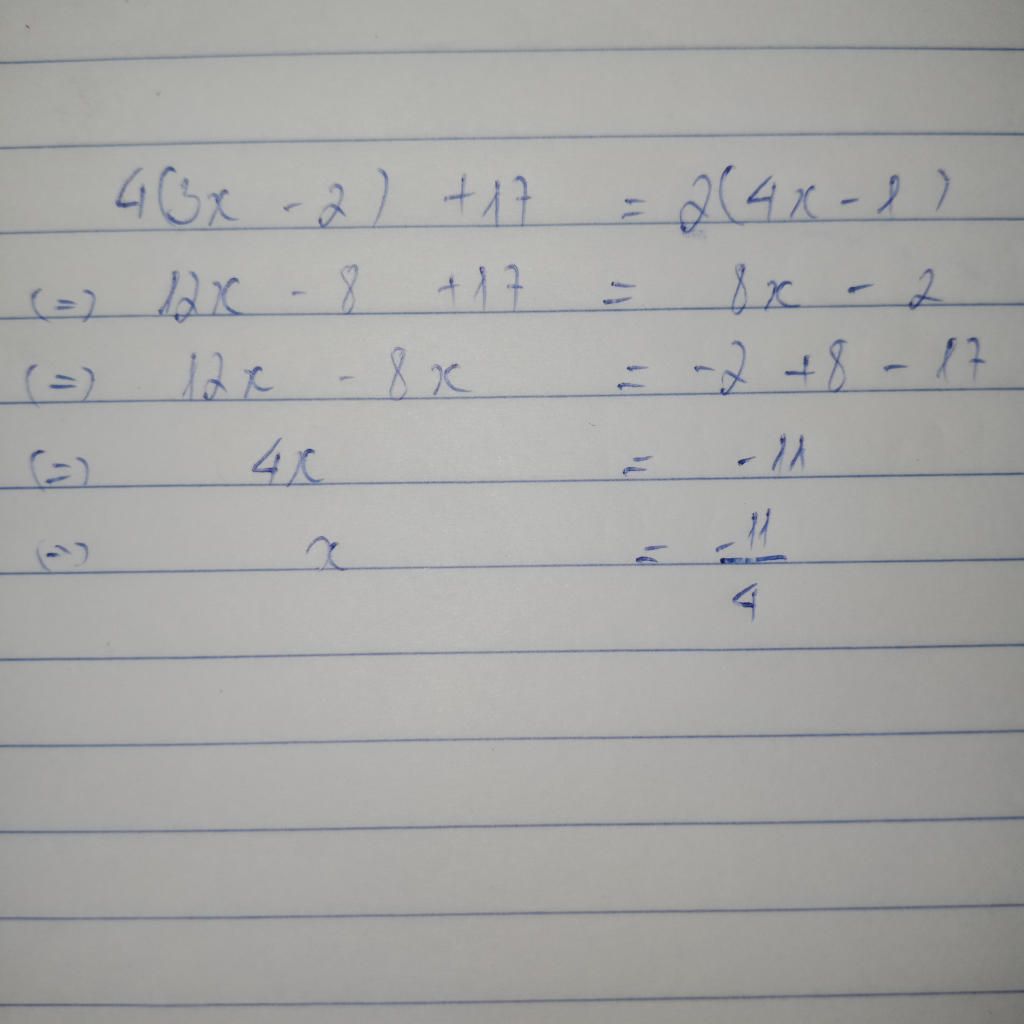 4(3x - 2) + 17 = 2(4x - 1)
(=) 12x - 8 + 17 = 8x - 2
(=) 12x - 8x = -2 + 8 - 17
(=) 4x = -11
(=) x = -11/4